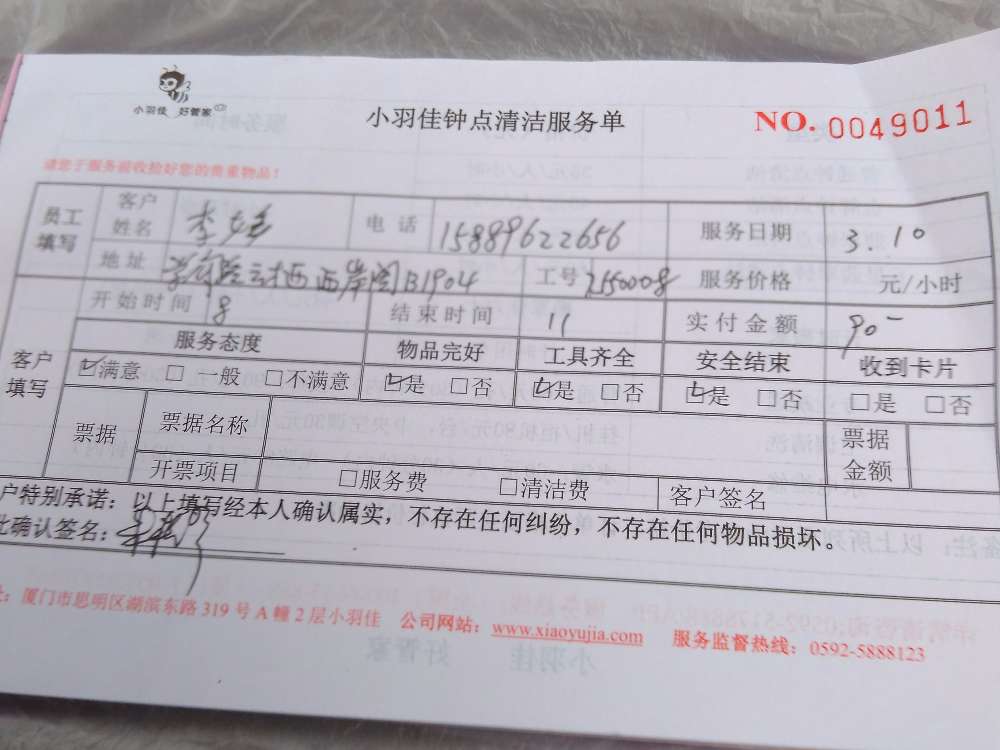 小羽佳 好管家
小羽佳钟点清洁服务单
NO. 0049011
请您于服务前收拾好您的贵重物品!
员工填写 客户姓名 李 电话 15889622656 服务日期 3.10
地址 西岸阁B1904 工号 2150008 服务价格 元/小时
开始时间 8 结束时间 11 实付金额 90-
客户填写 服务态度 物品完好 工具齐全 安全结束 收到卡片
☑满意 □一般 □不满意 ☑是 □否 ☑是 □否 ☑是 □否 □是 □否
票据 票据名称 票据金额
开票项目 □服务费 □清洁费 客户签名
户特别承诺:以上填写经本人确认属实,不存在任何纠纷,不存在任何物品损坏。
此确认签名:
址:厦门市思明区湖滨东路319号A幢2层小羽佳 公司网站:www.xiaoyujia.com 服务监督热线:0592-5888123